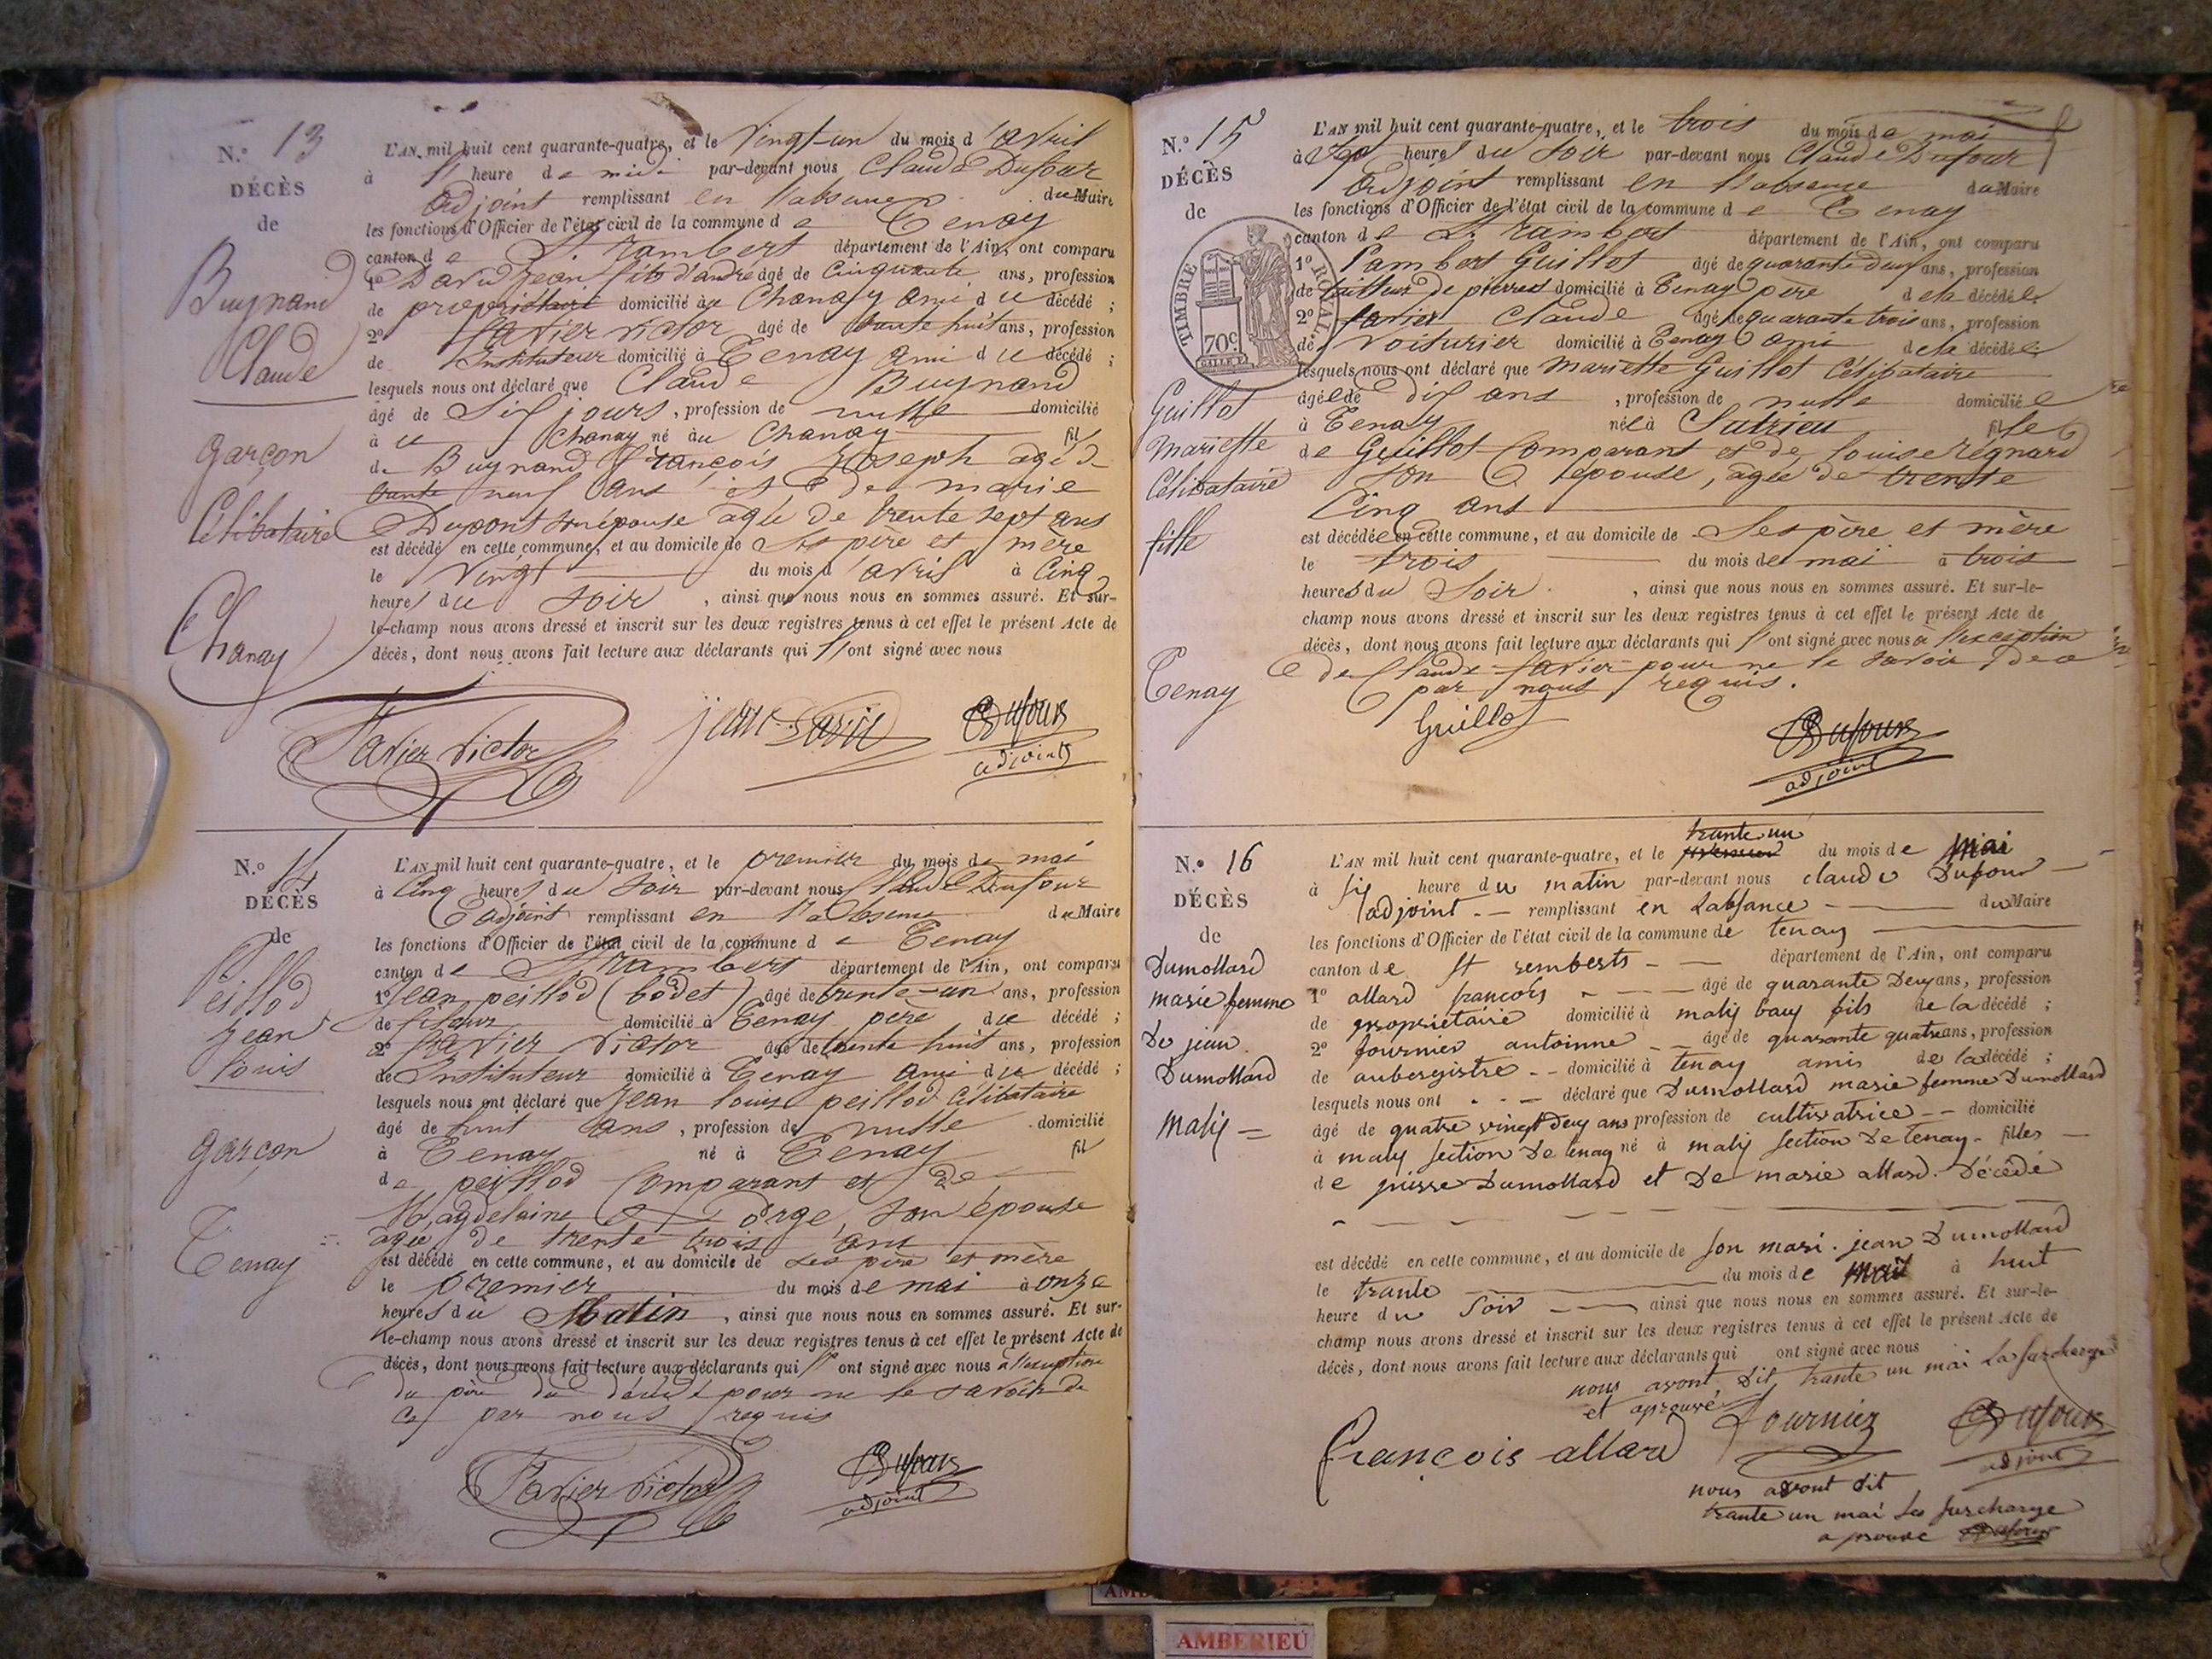 N.° 13
DÉCÈS
de
Buynand
Claude
garçon
Célibataire
Chanay
L'AN mil huit cent quarante-quatre, et le vingt-un du mois d'avril
à heure de midi par-devant nous Claude Dufour
adjoint remplissant en l'absence du Maire
les fonctions d'Officier de l'état civil de la commune de Tenay
canton de St. rambert département de l'Ain, ont comparu
1° Jean, fils d'andré âgé de Cinquante ans, profession
de propriétaire domicilié au Chanay ami du décédé ;
2° Savier Victor âgé de trente huit ans, profession
de Instituteur domicilié à Tenay ami du décédé ;
lesquels nous ont déclaré que Claude Buynand
âgé de Six jours, profession de nulle domicilié
à u Chanay né au Chanay fil
de Buynand françois Joseph agé de
trente neuf ans et de marie
Dupont son épouse agée de trente sept ans
est décédé en cette commune, et au domicile de Ses père et mère
le Vingt du mois d'avril à Cinq
heures du Soir, ainsi que nous nous en sommes assuré. Et sur-
le-champ nous avons dressé et inscrit sur les deux registres tenus à cet effet le présent Acte de
décès, dont nous avons fait lecture aux déclarants qui l'ont signé avec nous
Savier Victor Dufour
adjoint
N.° 14
DÉCÈS
de
Peillod
Jean
louis
garçon
Tenay
L'AN mil huit cent quarante-quatre, et le premier du mois de mai
à Cinq heures du Soir par-devant nous Claude Dufour
adjoint remplissant en l'absence du Maire
les fonctions d'Officier de l'état civil de la commune de Tenay
canton de St rambert département de l'Ain, ont comparu
1° Jean peillod (bodet) âgé de trente-un ans, profession
de fileur domicilié à Tenay père du décédé ;
2° Savier Victor âgé de trente huit ans, profession
de Instituteur domicilié à Tenay ami du décédé ;
lesquels nous ont déclaré que Jean louis peillod Célibataire
âgé de huit ans, profession de nulle domicilié
à Tenay né à Tenay fil
de peillod Comparant et de
Magdelaine orge, son épouse
agée de trente trois ans
est décédé en cette commune, et au domicile de ses père et mère
le premier du mois de mai à onze
heures du Matin, ainsi que nous nous en sommes assuré. Et sur-
le-champ nous avons dressé et inscrit sur les deux registres tenus à cet effet le présent Acte de
décès, dont nous avons fait lecture aux déclarants qui l'ont signé avec nous à l'exception
du père du décédé pour ne le savoir de
ce par nous requis
Savier Victor Dufour
adjoint
N.° 15
DÉCÈS
de
TIMBRE ROYAL
70c.
Guillot
Mariette
Célibataire
fille
Tenay
L'AN mil huit cent quarante-quatre, et le trois du mois de mai
à Sept heures du Soir par-devant nous Claude Dufour
adjoint remplissant en l'absence du Maire
les fonctions d'Officier de l'état civil de la commune de Tenay
canton de St. rambert département de l'Ain, ont comparu
1° Lambert Guillot âgé de quarante deux ans, profession
de tailleur de pierres domicilié à Tenay père de la décédée
2° Savier Claude âgé de quarante trois ans, profession
de Voiturier domicilié à Tenay ami de la décédée
lesquels nous ont déclaré que Mariette Guillot Célibataire
âgée de dix ans, profession de nulle domiciliée
à Tenay née à Sutrieu fille
de Guillot Comparant et de louise régnard
son épouse, agée de trente
Cinq ans
est décédée en cette commune, et au domicile de Ses père et mère
le trois du mois de mai à trois
heures du Soir, ainsi que nous nous en sommes assuré. Et sur-le-
champ nous avons dressé et inscrit sur les deux registres tenus à cet effet le présent Acte de
décès, dont nous avons fait lecture aux déclarants qui l'ont signé avec nous à l'exception
de Claude Savier pour ne le savoir de ce
par nous requis.
Guillot Dufour
adjoint
N.° 16
DÉCÈS
de
Dumollard
marie femme
De jean
Dumollard
Malix
trante un
L'AN mil huit cent quarante-quatre, et le premier du mois de Mai
à six heure du matin par-devant nous claude Dufour
adjoint remplissant en Labsance du Maire
les fonctions d'Officier de l'état civil de la commune de tenay
canton de St remberts département de l'Ain, ont comparu
1° allard francois âgé de quarante Deux ans, profession
de propriétaire domicilié à malix baux fils de la décédé ;
2° fournier antoinne âgé de quarante quatre ans, profession
de aubergistre domicilié à tenay amis de la décédé ;
lesquels nous ont déclaré que Dumollard marie femme Dumollard
âgé de quatre vingt Deux ans profession de cultivatrice domicilié
à malix section De tenay né à malix section De tenay filles
de pierre Dumollard et De marie allard. Décédé
est décédé en cette commune, et au domicile de son mari. jean Dumollard
le trante du mois de Mai à huit
heure du Soir ainsi que nous nous en sommes assuré. Et sur-le-
champ nous avons dressé et inscrit sur les deux registres tenus à cet effet le présent Acte de
décès, dont nous avons fait lecture aux déclarants qui ont signé avec nous
nous avont dit trante un mai La surcharge
et aprouvé
françois allard fournier Dufour
adjoint
nous avont dit
trante un mai La surcharge
aprouve Dufour
AMBERIEU